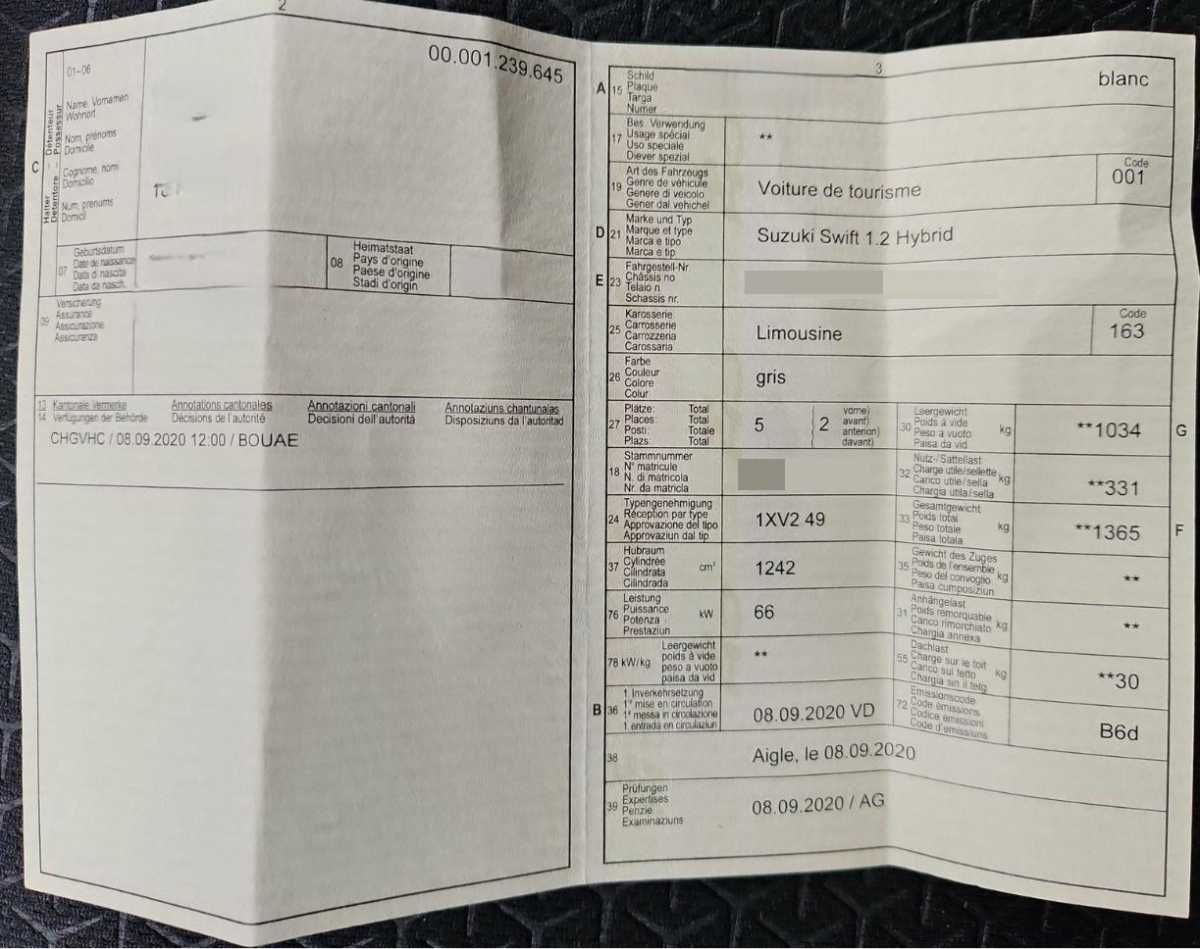 2
00.001.239.645
C
Halter - Détenteur
Detentore - Possessur
01-06
Name, Vornamen
Wohnort
Nom, prénoms
Domicile
Cognome, nomi
Domicilio
Num, prenums
Domicil
07
Geburtsdatum
Date de naissance
Data di nascita
Data da nasch.
08
Heimatstaat
Pays d'origine
Paese d'origine
Stadi d'origin
09
Versicherung
Assurance
Assicurazione
Assicuranza
13 Kantonale Vermerke Annotations cantonales Annotazioni cantonali Annotaziuns chantunalas
14 Verfügungen der Behörde Décisions de l'autorité Decisioni dell'autorità Disposiziuns da l'autoritad
CHGVHC / 08.09.2020 12:00 / BOUAE
3
A 15
Schild
Plaque
Targa
Numer
blanc
17
Bes. Verwendung
Usage spécial
Uso speciale
Diever spezial
**
19
Art des Fahrzeugs
Genre de véhicule
Genere di veicolo
Gener dal vehichel
Voiture de tourisme
Code
001
D 21
Marke und Typ
Marque et type
Marca e tipo
Marca e tip
Suzuki Swift 1.2 Hybrid
E 23
Fahrgestell-Nr.
Châssis no
Telaio n.
Schassis nr.
25
Karosserie
Carrosserie
Carrozzeria
Carossaria
Limousine
Code
163
26
Farbe
Couleur
Colore
Colur
gris
27
Plätze: Total
Places: Total
Posti: Totale
Plazs: Total
5
2
vorne)
avant)
anteriori)
davant)
30
Leergewicht
Poids à vide
Peso a vuoto
Paisa da vid
kg
**1034
G
18
Stammnummer
N° matricule
N. di matricola
Nr. da matricla
32
Nutz-/Sattellast
Charge utile/sellette
Carico utile/sella
Chargia utila/sella
kg
**331
24
Typengenehmigung
Réception par type
Approvazione del tipo
Approvaziun dal tip
1XV2 49
33
Gesamtgewicht
Poids total
Peso totale
Paisa totala
kg
**1365
F
37
Hubraum
Cylindrée
Cilindrata
Cilindrada
cm³
1242
35
Gewicht des Zuges
Poids de l'ensemble
Peso del convoglio
Paisa cumposiziun
kg
**
76
Leistung
Puissance
Potenza
Prestaziun
kW
66
31
Anhängelast
Poids remorquable
Carico rimorchiato
Chargia annexa
kg
**
78 kW/kg
Leergewicht
poids à vide
peso a vuoto
paisa da vid
**
55
Dachlast
Charge sur le toit
Carico sul tetto
Chargia sin il tetg
kg
**30
B 36
1. Inverkehrsetzung
1re mise en circulation
1a messa in circolazione
1. entrada en circulaziun
08.09.2020 VD
72
Emissionscode
Code émissions
Codice emissioni
Code d'emissiuns
B6d
38
Aigle, le 08.09.2020
39
Prüfungen
Expertises
Perizie
Examinaziuns
08.09.2020 / AG